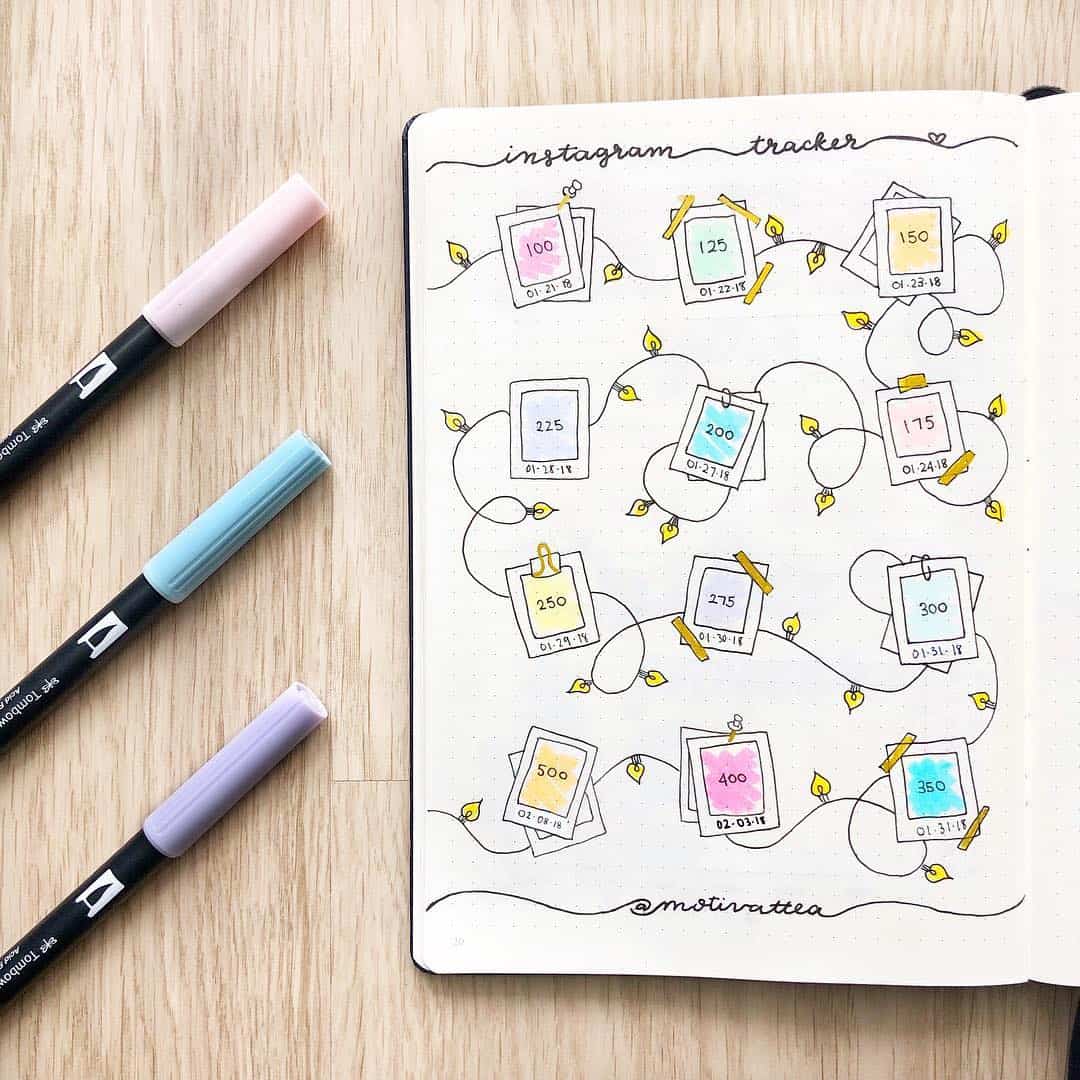 instagram tracker
100
01·21·18
125
01·22·18
150
01·23·18
225
01·28·18
200
01·27·18
175
01·24·18
250
01·29·18
275
01·30·18
300
01·31·18
500
02·08·18
400
02·03·18
350
01·31·18
@motivattea
Tombow
Tombow
Tombow